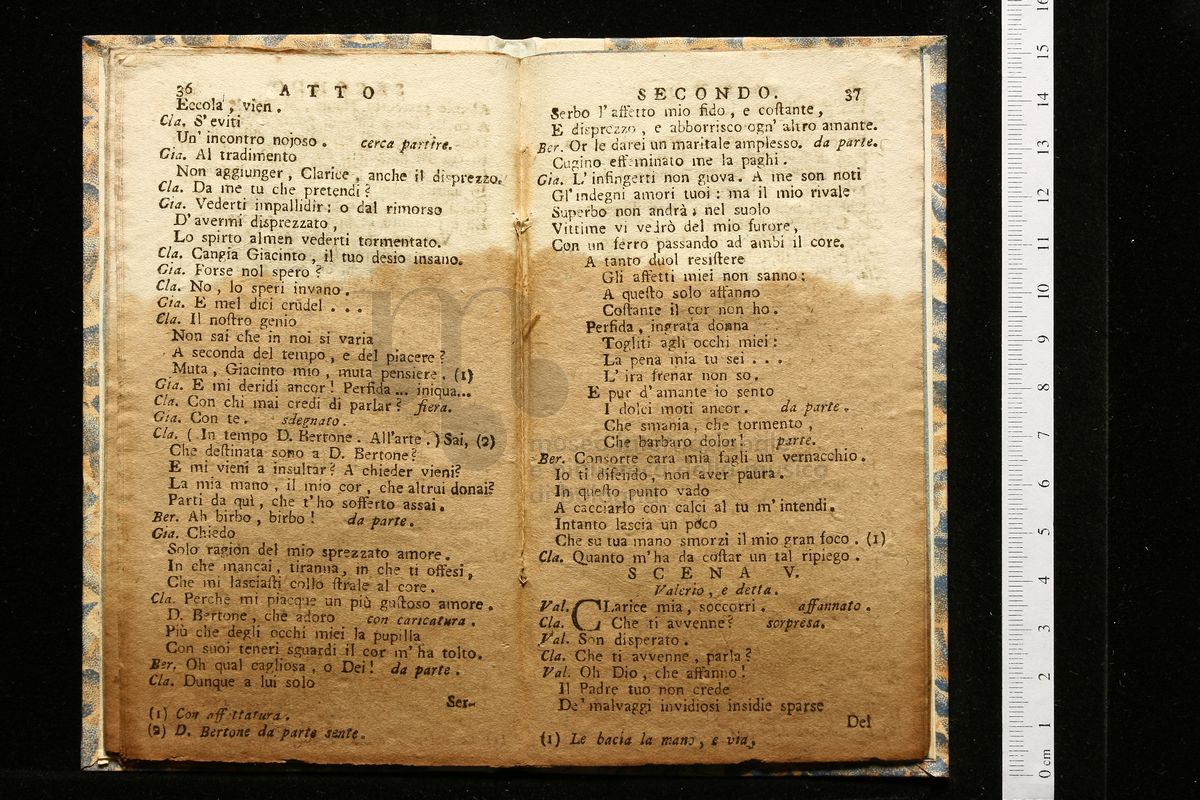 36 ATTO
Eccola, vien.
Cla. S'eviti
Un' incontro nojoso. cerca partire.
Gia. Al tradimento
Non aggiunger, Clarice, anche il disprezzo.
Cla. Da me tu che pretendi?
Gia. Vederti impallidir: o dal rimorso
D'avermi disprezzato,
Lo spirto almen vederti tormentato.
Cla. Cangia Giacinto, il tuo desio insano.
Gia. Forse nol spero?
Cla. No, lo speri invano.
Gia. E mel dici crudel ...
Cla. Il noſtro genio
Non sai che in noi si varia
A seconda del tempo, e del piacere?
Muta, Giacinto mio, muta pensiere. (1)
Gia. E mi deridi ancor! Perfida... iniqua...
Cla. Con chi mai credi di parlar? fiera.
Gia. Con te. sdegnato.
Cla. (In tempo D. Bertone. All'arte.) Sai, (2)
Che deſtinata sono a D. Bertone?
E mi vieni a insultar? A chieder vieni?
La mia mano, il mio cor, che altrui donai?
Parti da qui, che t'ho sofferto assai.
Ber. Ah birbo, birbo! da parte.
Gia. Chiedo
Solo ragion del mio sprezzato amore.
In che mancai, tiranna, in che ti offesi,
Che mi lasciaſti collo ſtrale al core.
Cla. Perchè mi piacque un più guſtoso amore.
D. Bertone, che adoro con caricatura.
Più che degli occhi miei la pupilla
Con suoi teneri sguardi il cor m'ha tolto.
Ber. Oh qual cagliosa, o Dei! da parte.
Cla. Dunque a lui solo
Ser-
(1) Con affettatura.
(2) D. Bertone da parte sente.
SECONDO. 37
Serbo l'affetto mio fido, e coſtante,
E disprezzo, e abborrisco ogn' altro amante.
Ber. Or le darei un maritale amplesso. da parte.
Cugino effeminato me la paghi.
Gia. L'infingerti non giova. A me son noti
Gl'indegni amori tuoi: ma il mio rivale
Superbo non andrà; nel suolo
Vittime vi vedrò del mio furore,
Con un ferro passando ad ambi il core.
A tanto duol resiſtere
Gli affetti miei non sanno:
A queſto solo affanno
Coſtante il cor non ho.
Perfida, ingrata donna
Togliti agli occhi miei:
La pena mia tu sei ...
L'ira frenar non so.
E pur d'amante io sento
I dolci moti ancor. da parte.
Che smania, che tormento,
Che barbaro dolor! parte.
Ber. Consorte cara mia fagli un vernacchio.
Io ti difendo, non aver paura.
In queſto punto vado
A cacciarlo con calci al tu m'intendi.
Intanto lascia un poco
Che su tua mano smorzi il mio gran foco. (1)
Cla. Quanto m'ha da coſtar un tal ripiego.
SCENA V.
Valerio, e detta.
Val. CLarice mia, soccorri. affannato.
Cla. Che ti avvenne? sorpresa.
Val. Son disperato.
Cla. Che ti avvenne, parla?
Val. Oh Dio, che affanno!
Il Padre tuo non crede
De' malvaggi invidiosi insidie sparse
Del
(1) Le bacia la mano, e via.